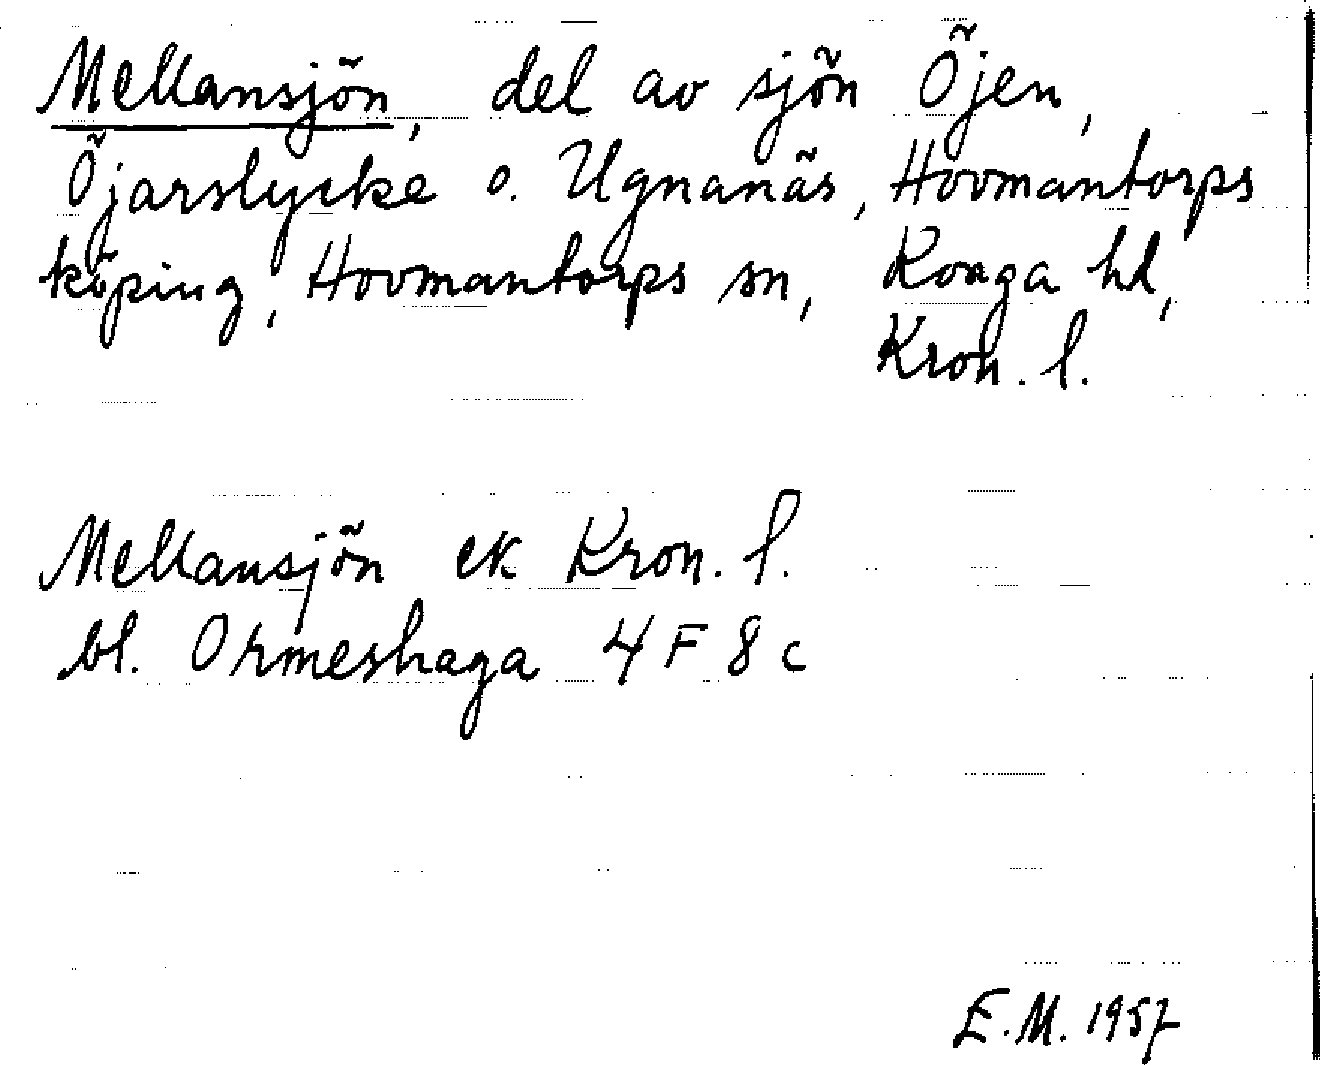 Mellansjön, del av sjön Öjen,
Öjarslycke o. Ugnanäs, Hovmantorps
köping, Hovmantorps sn, Konga hd,
Kron. l.
Mellansjön ek Kron. l.
bl. Ormeshaga 4 F 8 c
E.M. 1957